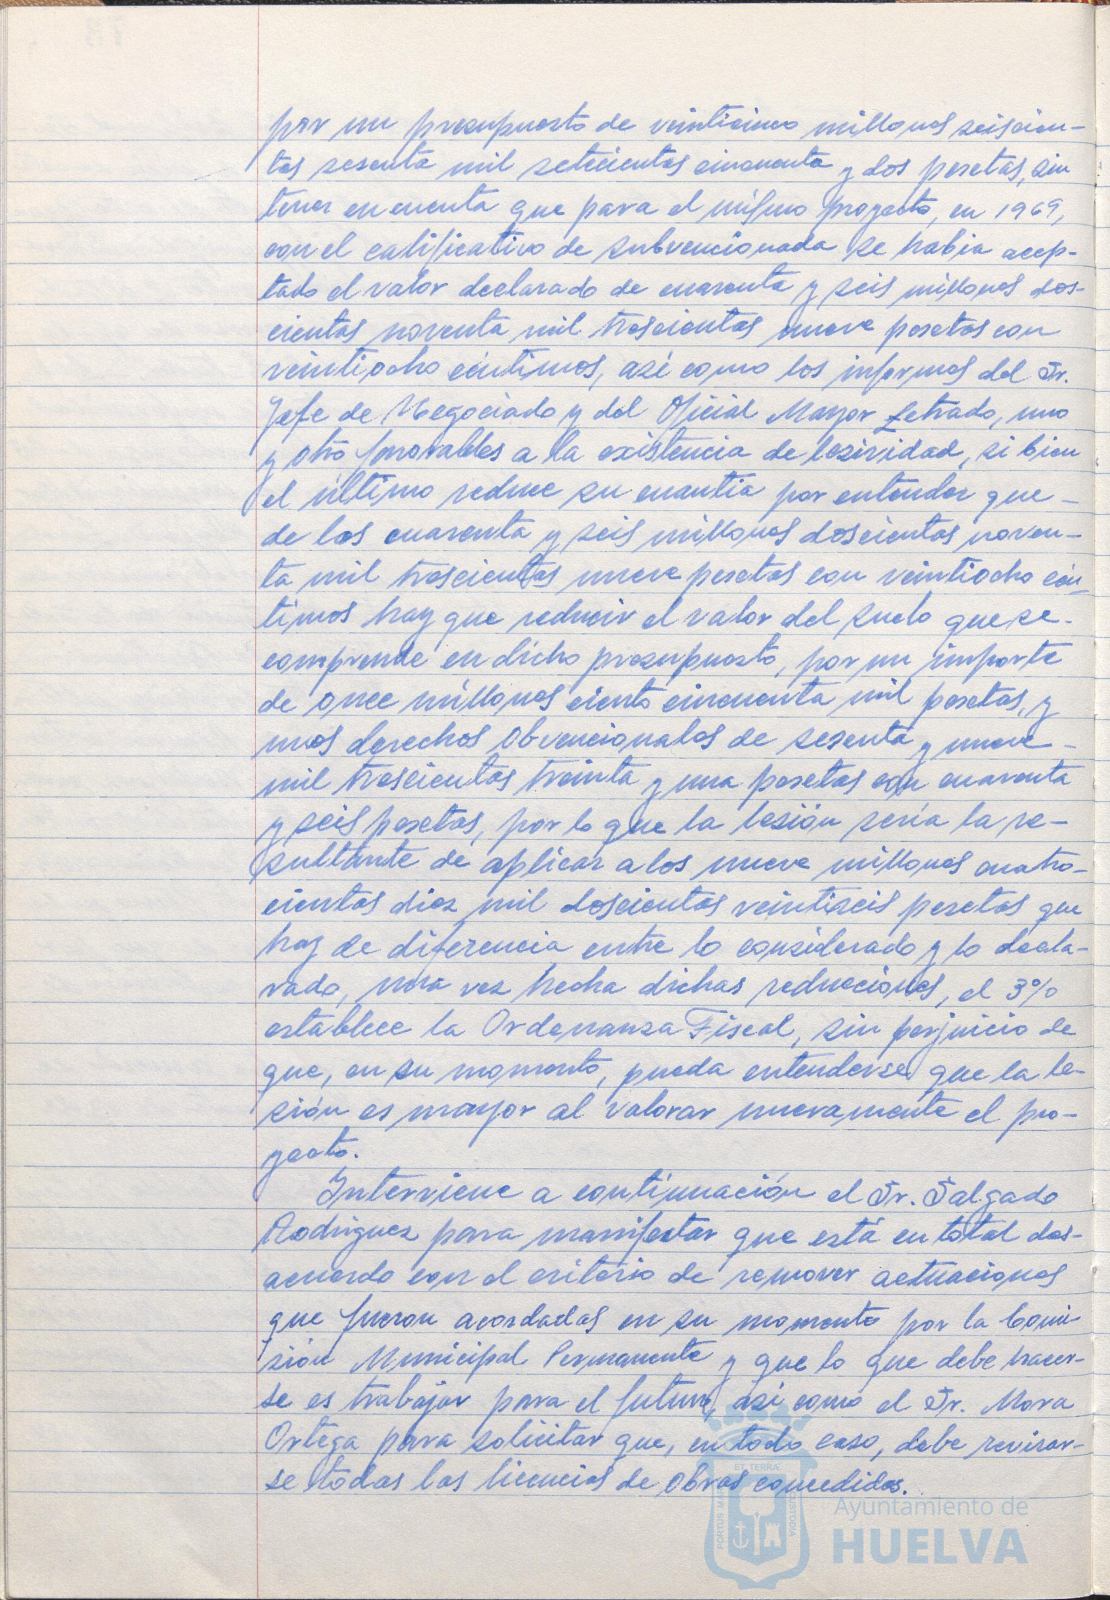 por un presupuesto de veinticinco millones seiscien-
tas sesenta mil setecientas cincuenta y dos pesetas, sin
tener en cuenta que para el mismo proyecto, en 1969,
con el calificativo de subvencionada se habia acep-
tado el valor declarado de cuarenta y seis millones dos-
cientas noventa mil trescientas nueve pesetas con
veintiocho céntimos, asi como los informes del Sr.
Jefe de Negociado y del Oficial Mayor Letrado, uno
y otro favorables a la existencia de lesividad, si bien
el último reduce su cuantia por entender que -
de los cuarenta y seis millones doscientas noven-
ta mil trescientas nueve pesetas con veintiocho cén-
timos hay que reducir el valor del suelo que se -
comprende en dicho presupuesto, por un importe
de once millones ciento cincuenta mil pesetas, y
unos derechos obvencionales de sesenta y nueve -
mil trescientas treinta y una pesetas con cuarenta
y seis pesetas, por lo que la lesión seria la re-
sultante de aplicar a los nueve millones cuatro-
cientas diez mil doscientas veintiseis pesetas que
hay de diferencia entre lo considerado y lo decla-
rado, una vez hecha dichas reducciones, el 3%
establece la Ordenanza Fiscal, sin perjuicio de
que, en su momento, pueda entenderse que la le-
sión es mayor al valorar nuevamente el pro-
yecto.
Interviene a continuación el Sr. Salgado
Rodriguez para manifestar que está en total des-
acuerdo con el criterio de remover actuaciones
que fueron acordadas en su momento por la Comi-
sión Municipal Permanente y que lo que debe hacer-
se es trabajar para el futuro, asi como el Sr. Mora
Ortega para solicitar que, en todo caso, debe revisar-
se todas las licencias de obras concedidas.
ET TERRÆ
PORTUS MARIS
CUSTODIA
Ayuntamiento de
HUELVA